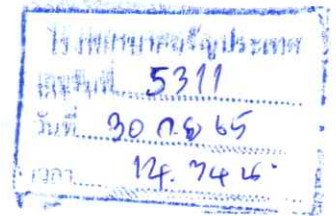 โรงพยาบาลอรัญประเทศ
เลขรับที่ 5311
วันที่ 30 ก.ย 65
เวลา 14.34 น.